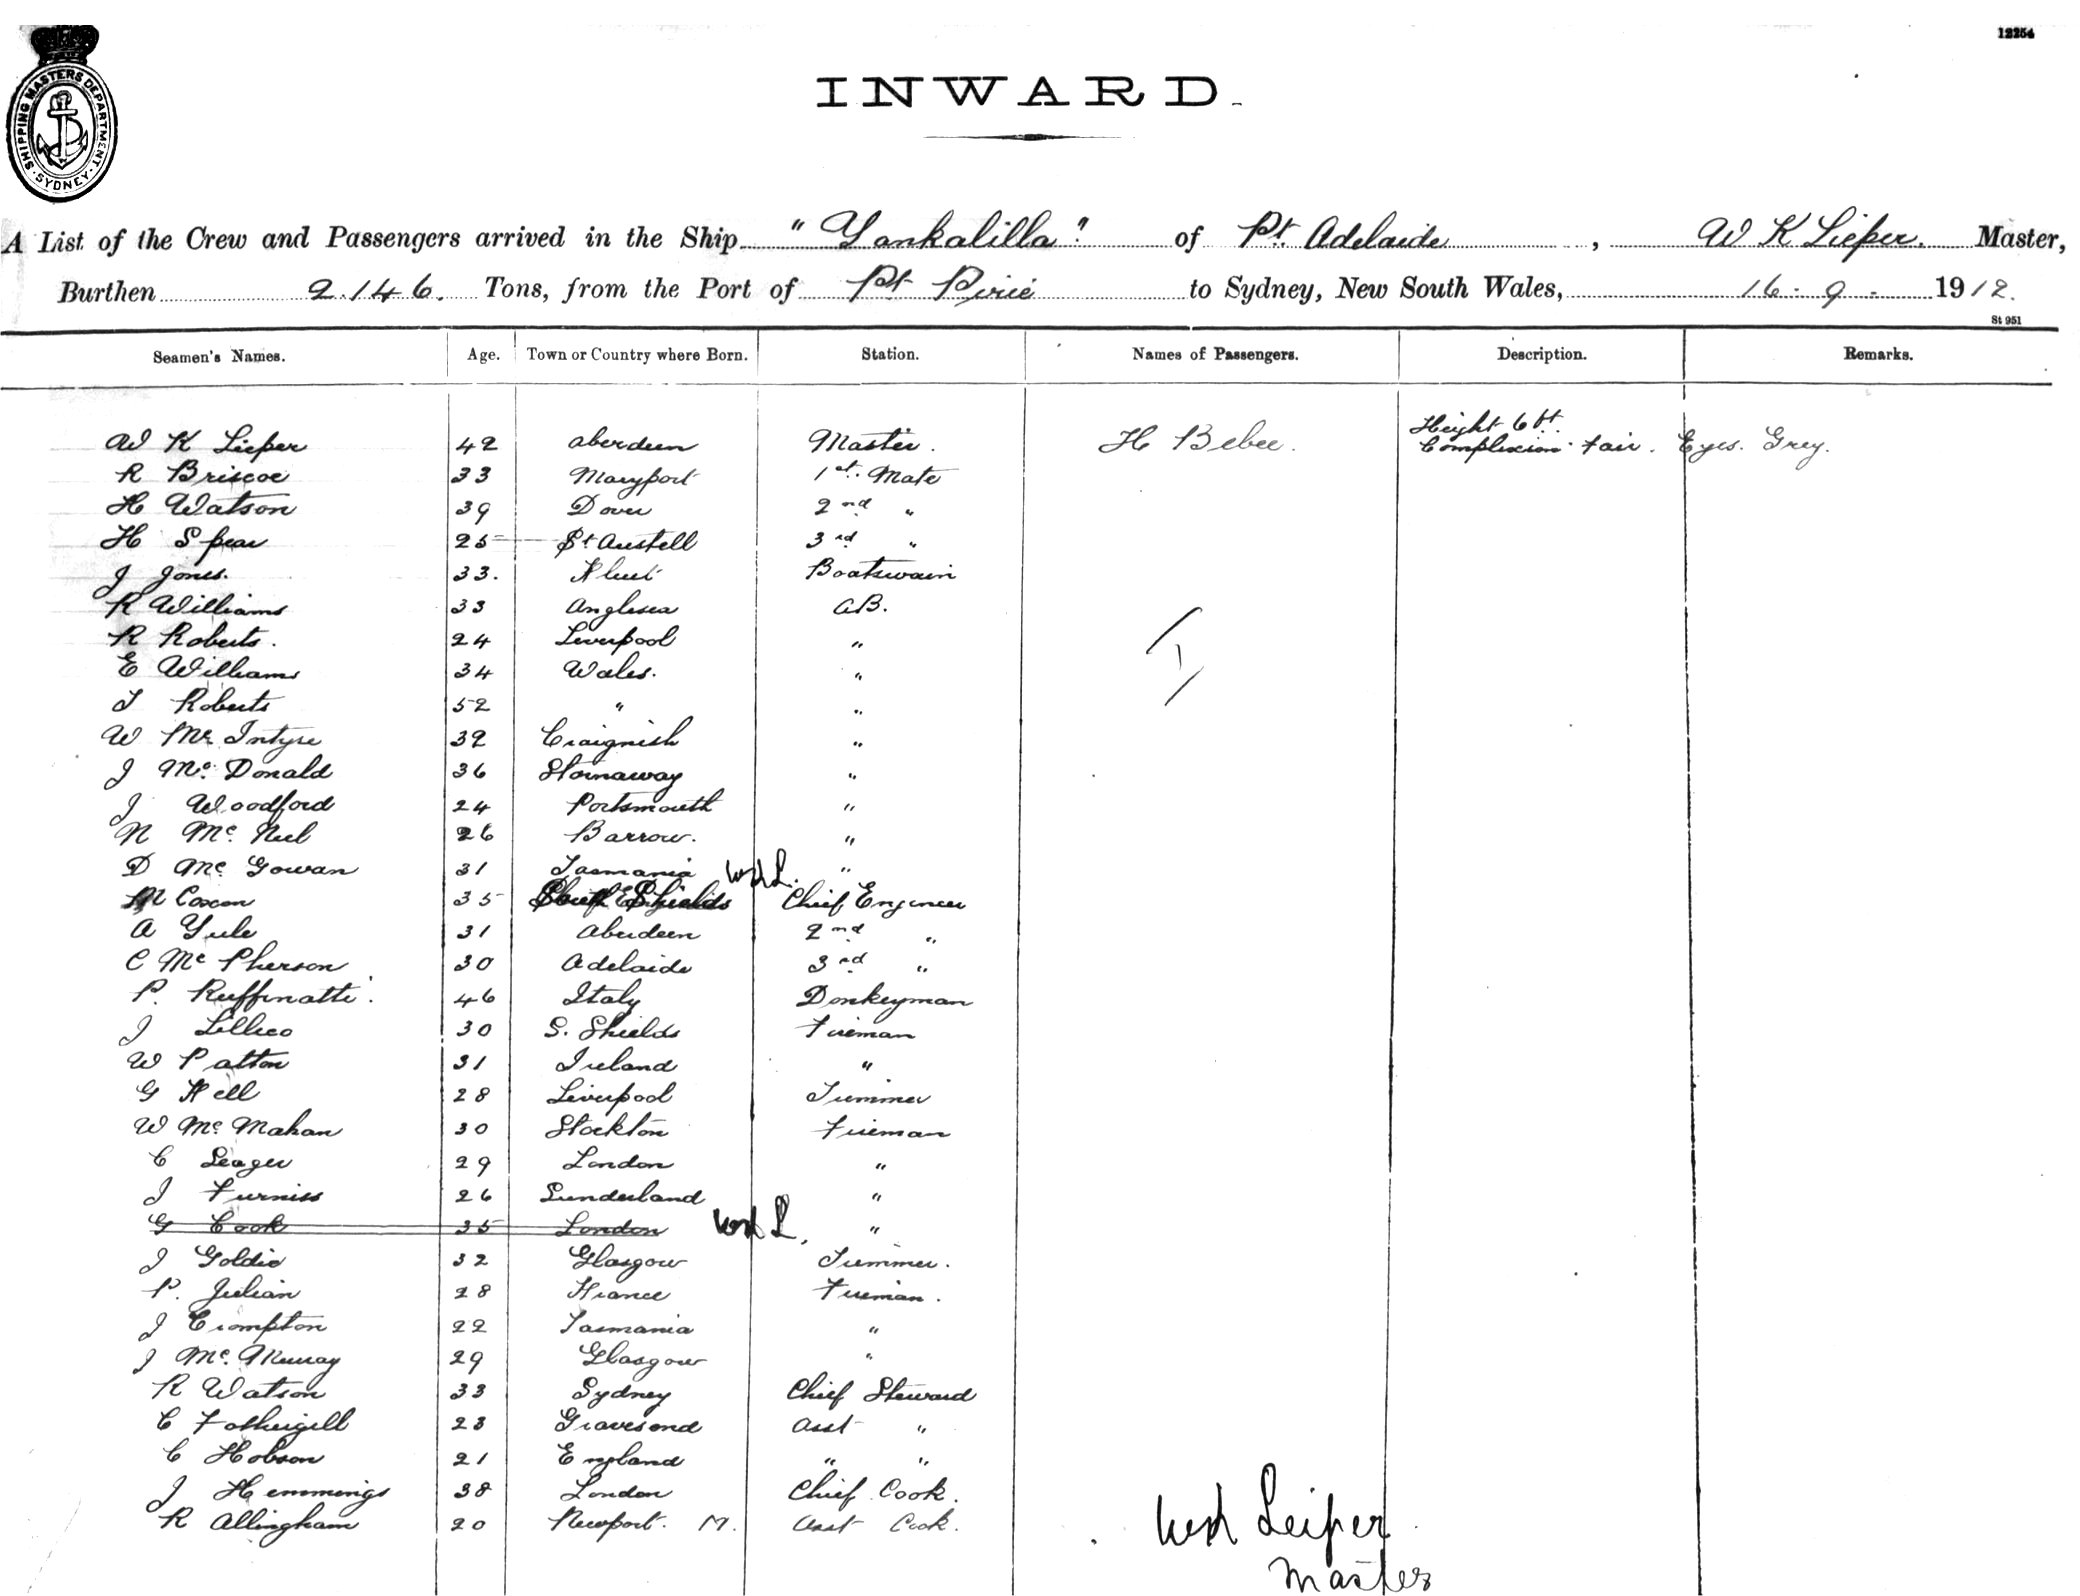 12254
SHIPPING MASTERS DEPARTMENT
SYDNEY
INWARD.
A List of the Crew and Passengers arrived in the Ship "Yankalilla" of Pt. Adelaide, W K Lieper. Master,
Burthen 2.146. Tons, from the Port of Pt Pirie to Sydney, New South Wales, 16-9-1912.
St 951
Seamen's Names. Age. Town or Country where Born. Station. Names of Passengers. Description. Remarks.
Height 6 ft.
W K Lieper 42 Aberdeen Master. H Bebee. Complexion. Fair. Eyes. Grey.
R Briscoe 33 Maryport 1st. Mate
H Watson 39 Dover 2nd "
H Spear 25 St Austell 3rd "
J Jones. 33. Boatswain
R Williams 33 Anglesea A.B.
R Roberts. 24 Liverpool "
E Williams 34 Wales. "
T Roberts 52 " "
W Mc Intyre 32 Craignish "
J Mc. Donald 36 Stornaway "
J Woodford 24 Portsmouth "
N Mc. Neil 26 Barrow. "
D Mc Gowan 31 Tasmania WKL. "
M Coxon 35 South Shields Chief Engineer
A Yule 31 Aberdeen 2nd "
C Mc Pherson 30 Adelaide 3rd "
P. Ruffinatti. 46 Italy Donkeyman
J Lillico 30 S. Shields Fireman
W Patton 31 Ireland "
G Kell 28 Liverpool Trimmer
W Mc Mahan 30 Stockton Fireman
C Seager 29 London "
J Furniss 26 Sunderland "
G Cook 35 London WKL. "
J Goldie 32 Glasgow Trimmer.
P. Julian 28 France Fireman.
J Crompton 22 Tasmania "
J Mc. Murray 29 Glasgow "
R Watson 33 Sydney Chief Steward
C Fothergill 23 Gravesend Asst "
C Hobson 21 England " "
J Hemmings 38 London Chief Cook.
R Allingham 20 Newport. M. Asst Cook.
WK Leiper
Master